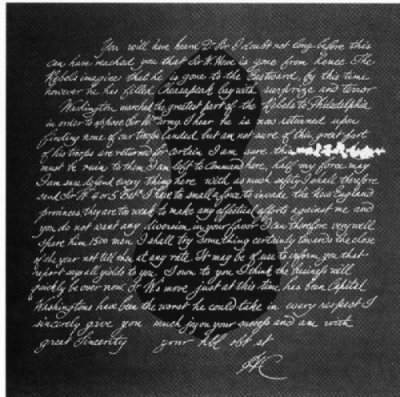 You will have heard, Dr Sir I doubt not long before this
can have reached you that Sir W. Howe is gone from hence. The
Rebels imagine that he is gone to the Eastward, by this time
however he has filled Chesapeak bay with surprize and terror
Washington marched the greatest part of the Rebels to Philadelphia
in order to oppose Sir Wms army. I hear he is now returned upon
finding none of our troops landed but am not sure of this great part
of his troops are returned for certain I am sure this
must be ruin to them I am left to command here, half my force may
I am sure defend every thing here with as much safety I shall therefore
send Sir W. 4 or 5 Batns I have to small a force to invade the New England
provinces, they are too weak to make any effectual efforts against me and
you do not want any diversion in your favor I can therefore very well
spare him 1500 men I shall try some thing certainly towards the close
of the year not till then at any rate. It may be of use to inform you that
report says all yields to you. I own to you I think the business will
quickly be over now. Sr Ws move just at this time has been Capital
Washingtons have been the worst he could take in every respect I
sincerely give you much joy on your success and am with
great Sincerity your hbl obt st
HC